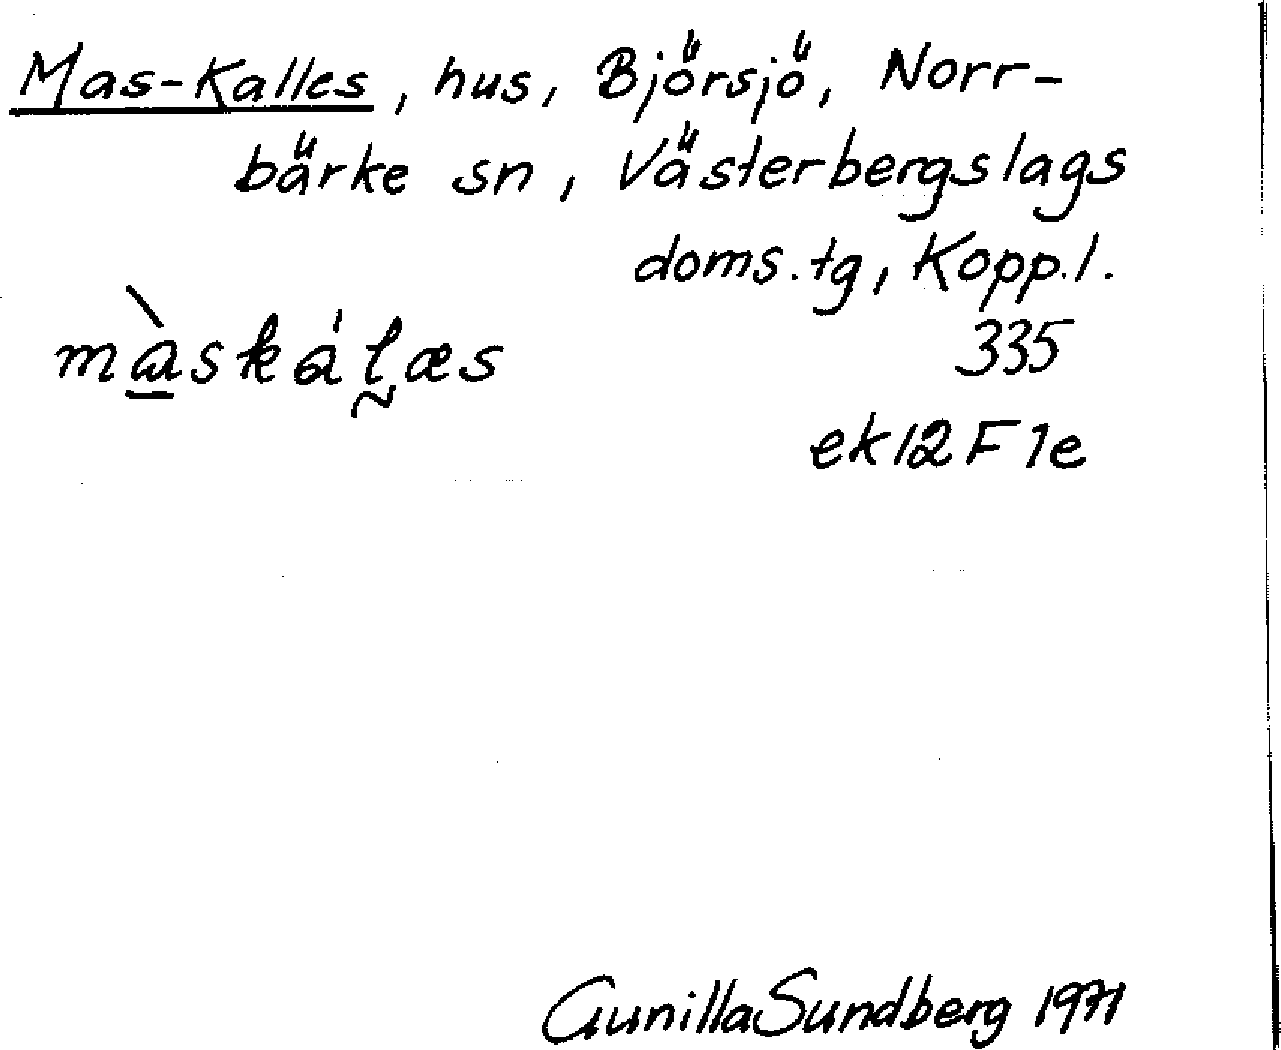 Mas-Kalles, hus, Björsjö, Norr-
bärke sn, Västerbergslags
doms.tg, Kopp.l.
màskál̰æs
335
ek12F1e
Gunilla Sundberg 1971